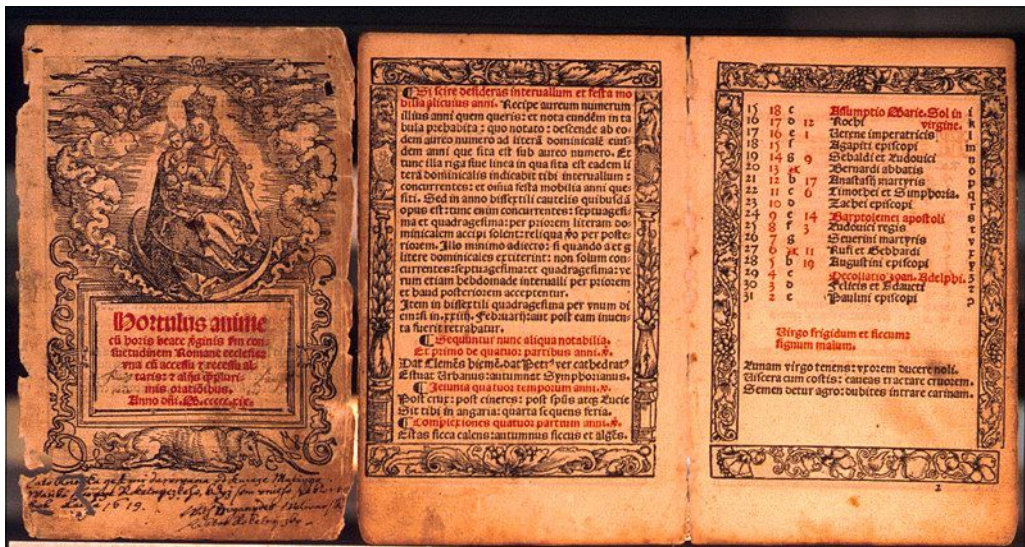 Hortulus anime
cū horis beate v̄ginis ſm con
ſuetudinem Romane eccleſie
vna cū acceſſu ⁊ receſſu al
taris: ⁊ alijs ꝙpluri
mis orationibus.
Anno dn̄i. M.ccccc.xix.
1619.
¶ Si ſcire deſideras interuallum et feſta mo
bilia alicuius anni. Recipe aureum numerum
illius anni quem queris: et nota eundem in ta
bula prehabita: quo notato: deſcende ab eo
dem aureo numero ad literā dominicalē eiuſ
dem anni que ſita eſt ſub aureo numero. Et
tunc illa riga ſiue linea in qua ſita eſt eadem li
terā dominicalis indicabit tibi interuallum:
concurrentes: et oīnia feſta mobilia anni que
ſiti. Sed in anno biſſextili cautelis quibuſdā
opus eſt: tunc enim concurrentes: ſeptuageſi
ma et quadrageſima: per priorem literam do
minicalem accipi ſolent: reliqua v̄o per poſte
riorem. Illo minimo adiecto: ſi quando a et g
litere dominicales extiterint: non ſolum con
currentes: ſeptuageſima: et quadrageſima: ve
rum etiam hebdomade interualli per priorem
et haud poſteriorem acceptentur.
Item in biſſextili quadrageſima per vnum di
em: ſi in .xxiij. Februarij: aut poſt eam inuen
ta fuerit retrahatur.
¶ Sequuntur nunc aliqua notabilia.
Et primo de quatuor partibus anni.
Dat Clemēs hiemē. dat Petrꝰ ver cathedratꝰ
Eſtuat Urbanus: autumnat Symphorianus.
¶ Jeiunia quatuor temporum anni.
Poſt cruꝫ: poſt cineres: poſt ſpūs atqꝫ Lucie
Sit tibi in angaria: quarta ſequens feria.
¶ Complexiones quatuor partium anni.
Eſtas ſicca calens: autumnus ſiccus et algēs.
15 18 c Aſſumptio Marie. Sol in i
16 17 d 12 Rochi virgine. k
17 16 e 1 Uerene imperatricis l
18 15 f Agapiti epiſcopi m
19 14 g 9 Sebaldi et Ludouici n
20 13 Bernardi abbatis o
21 12 b 17 Anaſtaſij martyris p
22 11 c 6 Timothei et Simphoria. q
23 10 d Zachei epiſcopi r
24 9 e 14 Bartolomei apoſtoli s
25 8 f 3 Ludouici regis t
26 7 g Seuerini martyris v
27 6 11 Rufi et Gebhardi x
28 5 b 19 Auguſtini epiſcopi y
29 4 c Decollatio Joan. Adelphi. z
30 3 d Felicis et Adaucti
31 2 e Paulini epiſcopi
Virgo frigidum et ſiccum:
ſignum malum.
Lunam virgo tenens: vxorem ducere noli.
Uiſcera cum coſtis: caueas tractare cruorem.
Semen detur agro: dubites intrare carinam.